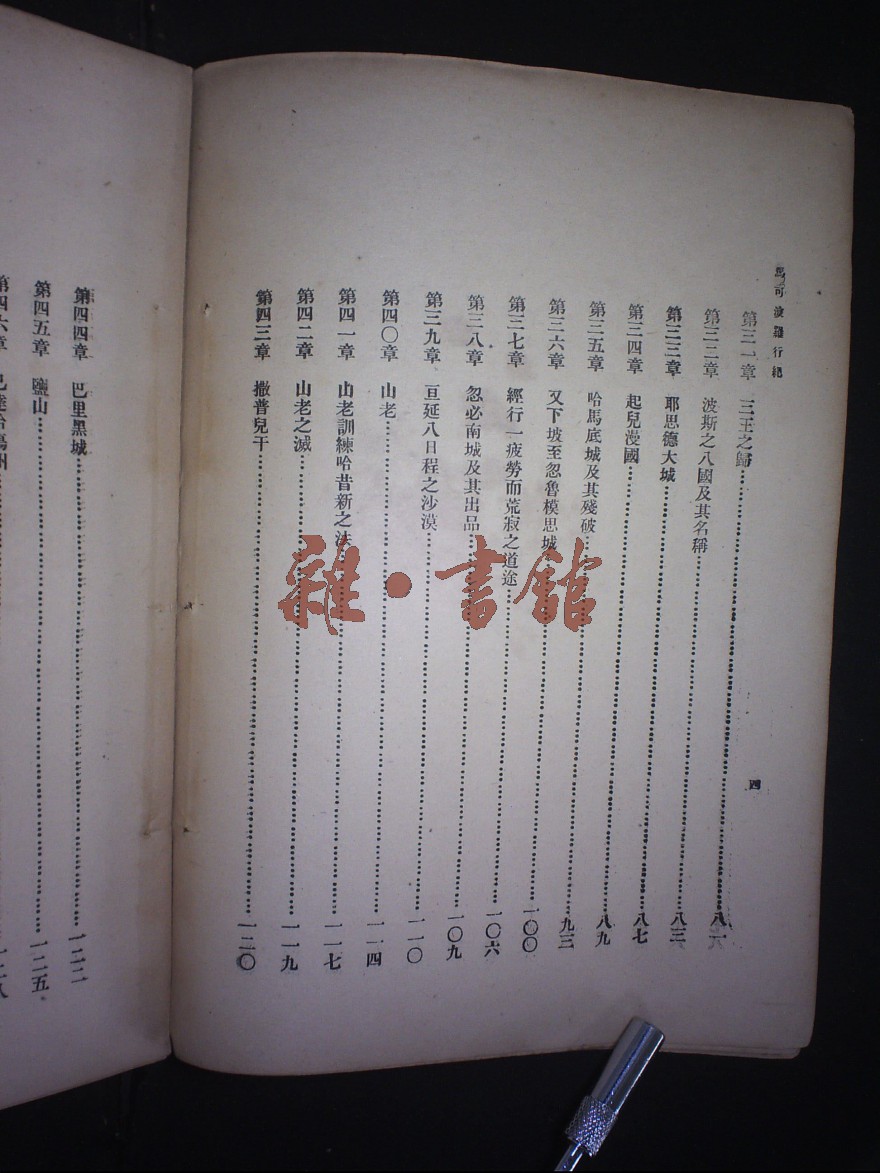 馬可波羅行紀
四
第三一章 三王之歸……八一
第三二章 波斯之八國及其名稱……八三
第三三章 耶思德大城……八七
第三四章 起兒漫國……八九
第三五章 哈馬底城及其殘破……九三
第三六章 又下坡至忽魯模思城……一〇〇
第三七章 經行一疲勞而荒寂之道途……一〇六
第三八章 忽必南城及其出品……一〇九
第三九章 亘延八日程之沙漠……一一〇
第四〇章 山老……一一四
第四一章 山老訓練哈昔新之法……一一七
第四二章 山老之滅……一一九
第四三章 撒普兒干……一二〇
第四四章 巴里黑城……一二二
第四五章 鹽山……一二五
第四六章
雜·書館